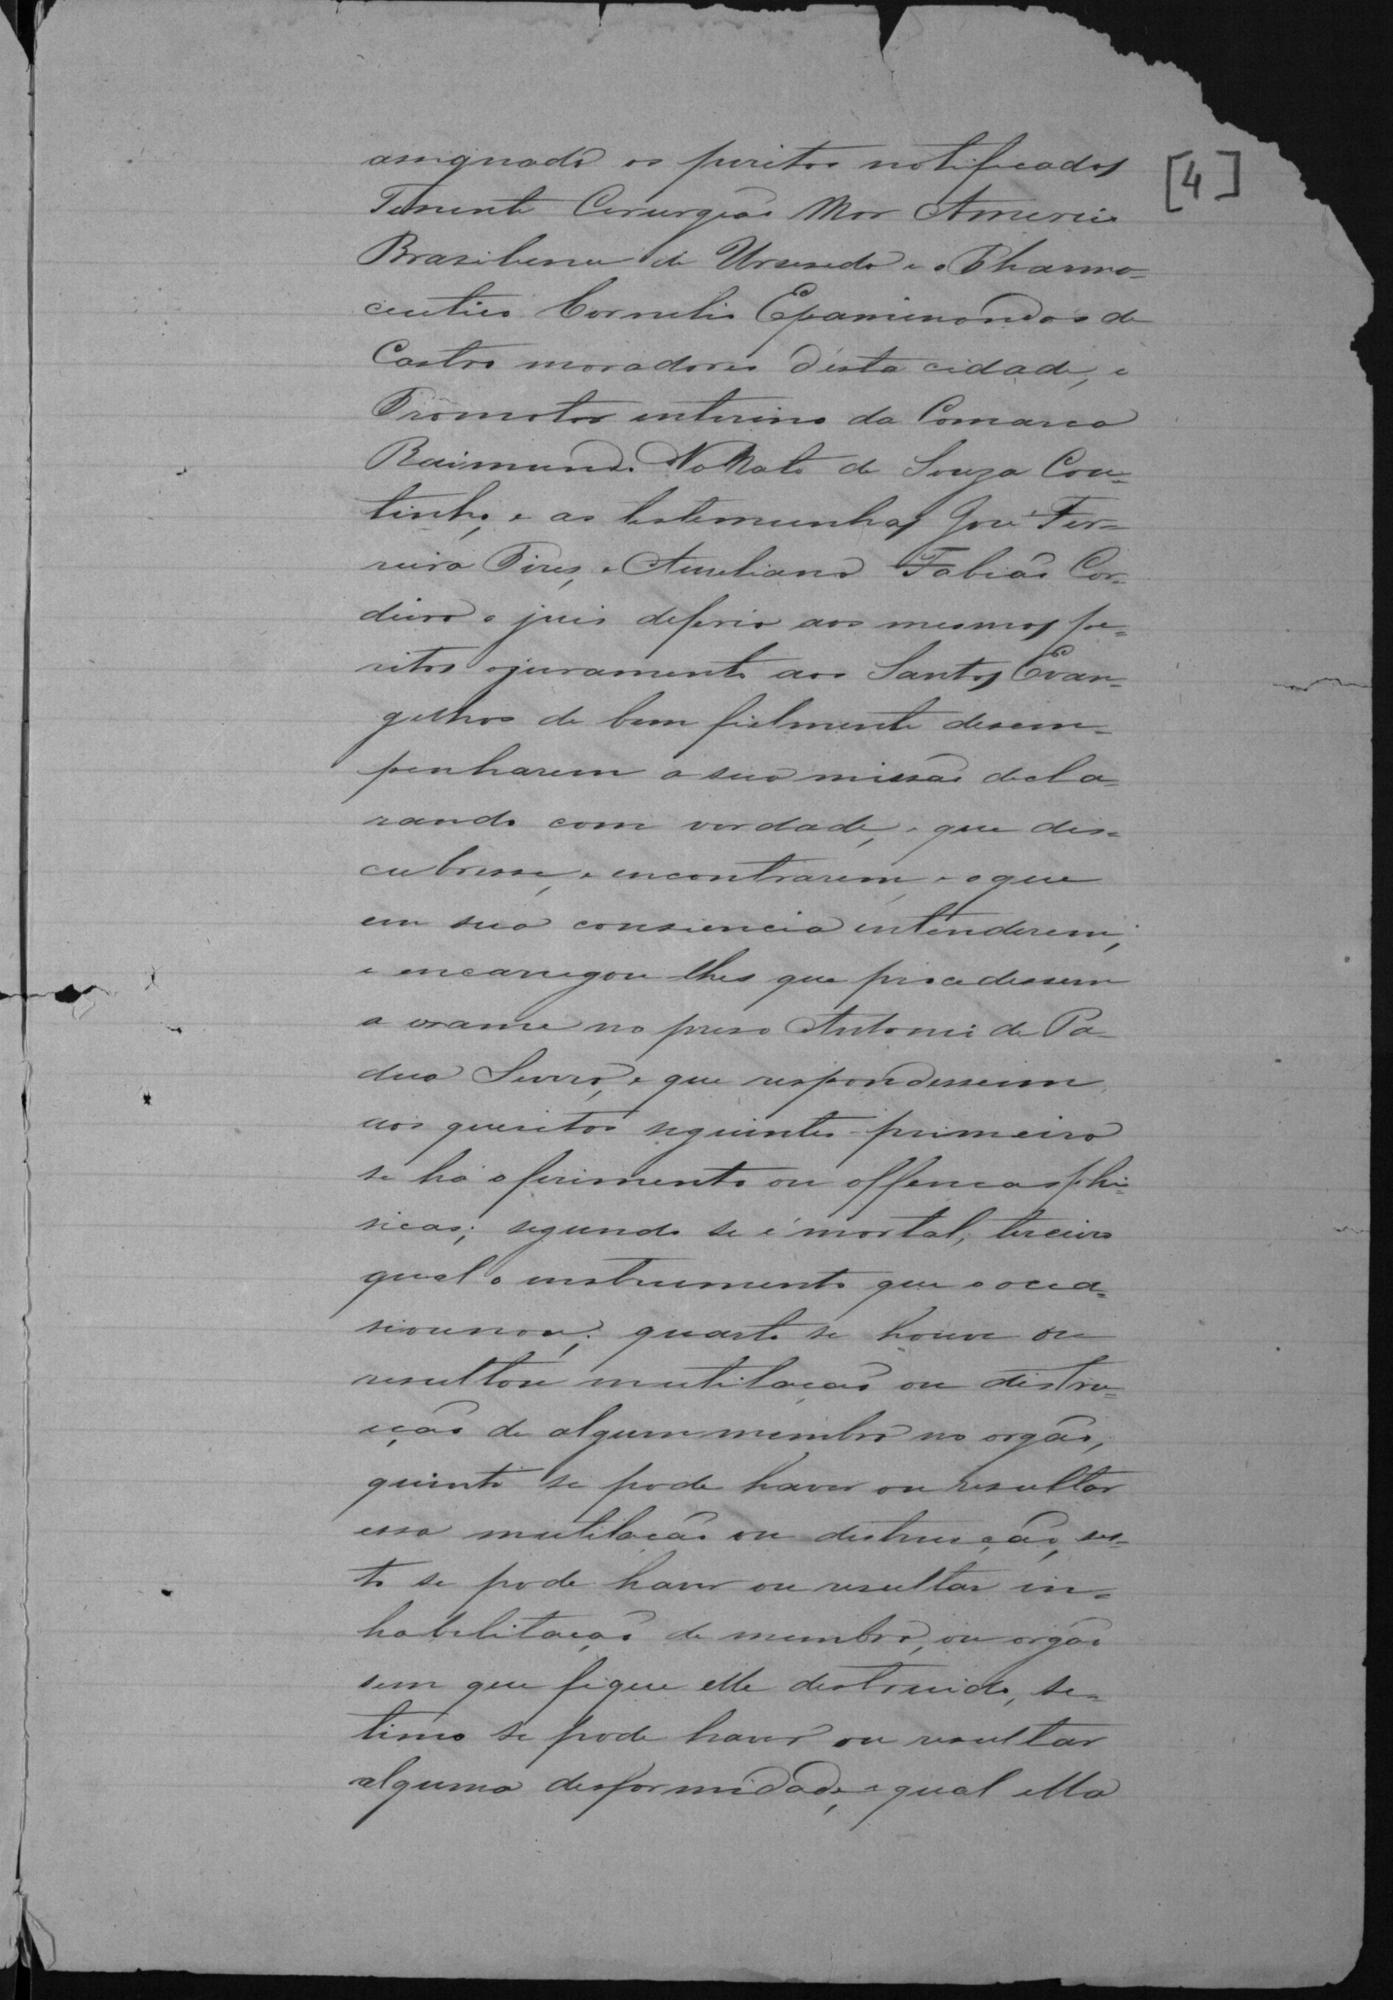 [4]
assignado os peritos notificados
Tenente Cirurgião Mor Americo
Brasiliense de e o Pharma=
ceutico Cornelio Epaminondas de
Castro moradores d'esta cidade, e
Promotor interino da Comarca
Raimundo Nonato de Souza Cou=
tinho, e as testemunhas José Fer=
reira Pires, e Aureliano Fabião Cor=
deiro o juis deferio aos mesmos pe=
ritos o juramento aos Santos Evan=
gelhos de bem fielmente desem=
penharem a sua missão decla=
rando com verdade, o que des=
cubrissem, e encontrarem e o que
em sua consiencia intenderem;
e encarregou lhes que procedessem
a exame no preso Antonio de Pa=
dua e que respondessem
aos quesitos seguintes primeiro
se há o ferimento ou offencas phi=
sicas; segundo se é mortal; terceiro
qual o instrumento que o occa=
sionou; quarto se houve ou
resultou mutilação ou distru=
cção de algum membro ou orgão;
quinto se pode haver ou resultar
essa mutilação ou distruição, ses=
to se pode haver ou resultar in=
habilitação de membro, ou orgão
sem que fique elle destruido, se=
timo se pode haver ou resultar
alguma desformidade, e qual ella